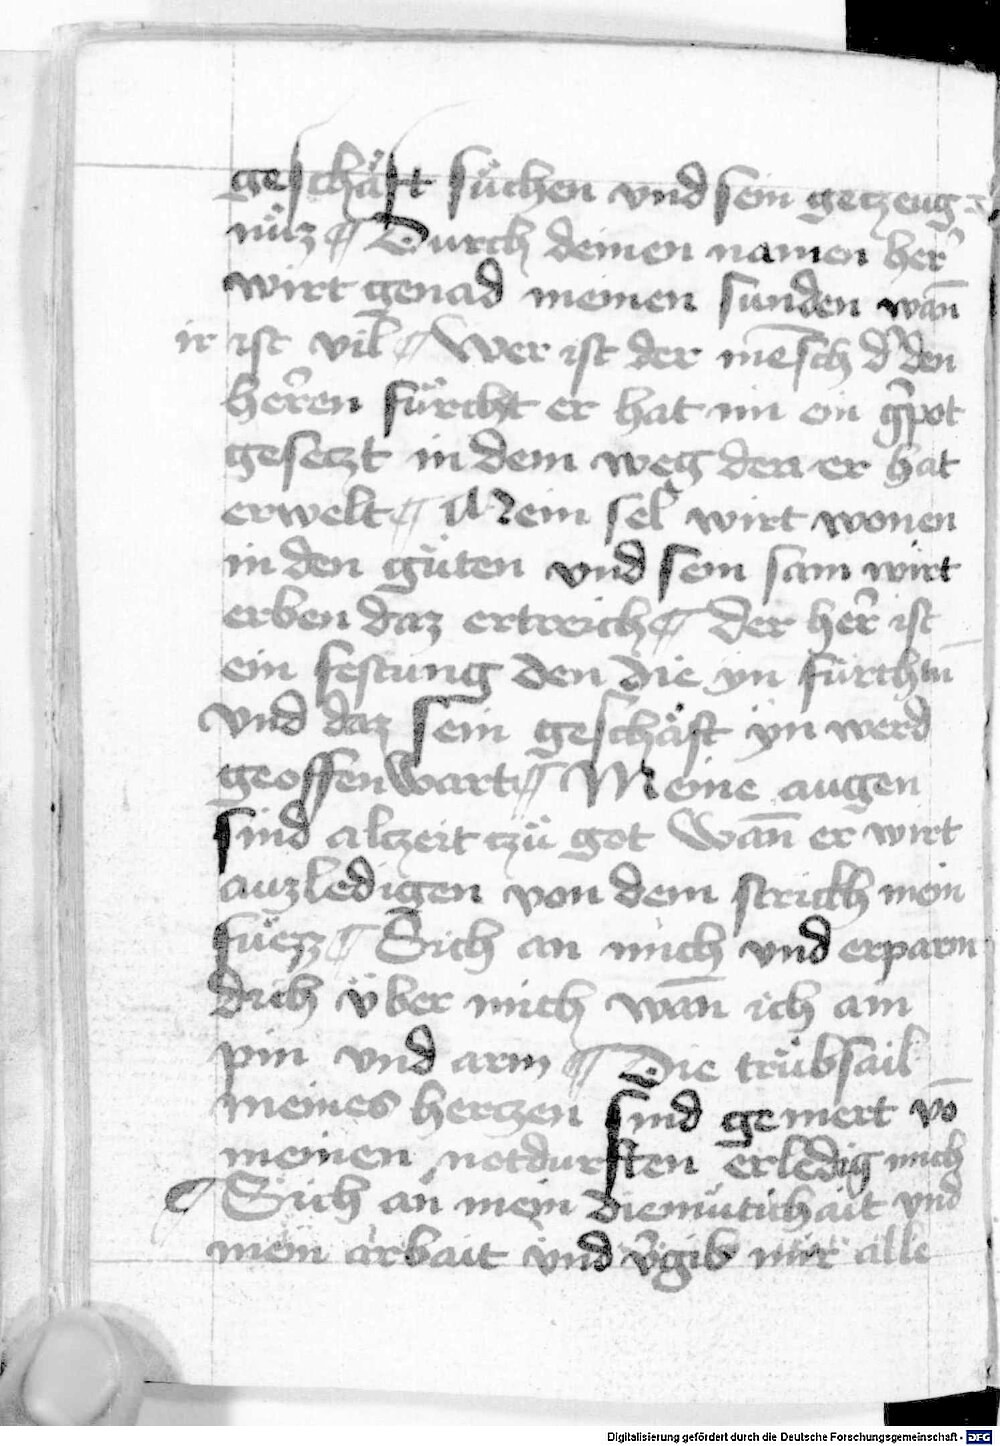 geschäft süchen vnd sein getzeug-
nüz ¶ Durch deinen namen her̄
wirt genad meinen sunden wan̄
ir ist vil ¶ Wer ist der mēsch d' den
heren fürcht er hat im ein g'pot
gesetzt in dem weg den er hat
erwelt ¶ Mein sel wirt wonen
in den güten vnd sein sam wirt
erben daz ertreich ¶ Der her̄ ist
ein festung den die yn fürchtn̄
vnd daz sein geschäft yn werd
geoffenwart ¶ Meine augen
sind alczeit czü got Wan̄ er wirt
auzledigen von dem strickh mein
füezz ¶ Sich an mich vnd erparm
dich über mich wan̄ ich am
pin vnd arm ¶ Die trübsail
meines herczen sind gemert vō
meinen notdurften erledig mich
¶ Sich an mein diemütichait vnd
mein arbait vnd v'gib mir alle
Digitalisierung gefördert durch die Deutsche Forschungsgemeinschaft - DFG